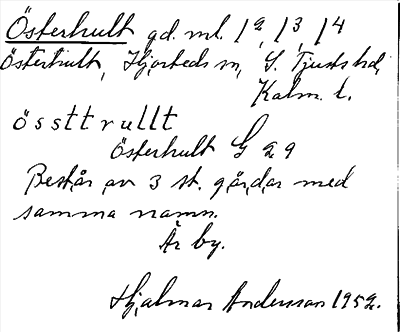 Österhult gd. ml. 1/2, 1/3, 1/4
Österhult, Hjorteds sn, S. Tjusts hd,
Kalm. l.
össttrullt
Österhult G 29
Består av 3 st. gårdar med
samma namn.
Är by.
Hjalmar Andersson 1952.